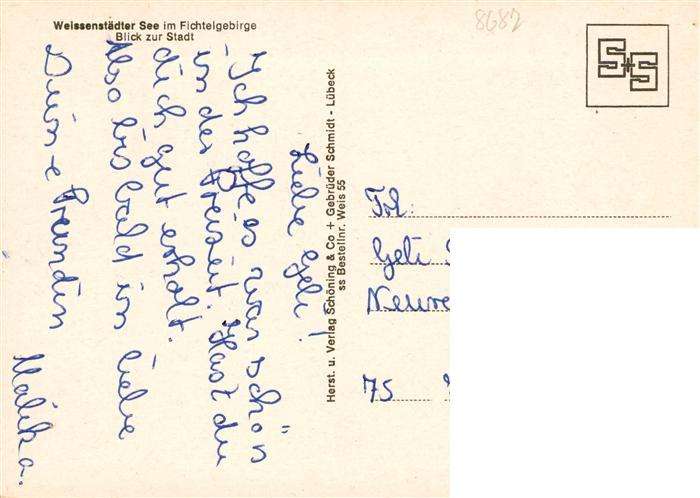 Weissenstädter See im Fichtelgebirge
Blick zur Stadt
8682
S+S
Liebe Geli!
Ich hoffe es war schön
in der Freizeit. Hast du
dich gut erholt.
Also bis bald in liebe
Deine Freundin
Malika.
Herst. u. Verlag Schöning & Co + Gebrüder Schmidt - Lübeck
ss Bestellnr. Weis 55
Frl.
Geli
Neure
75